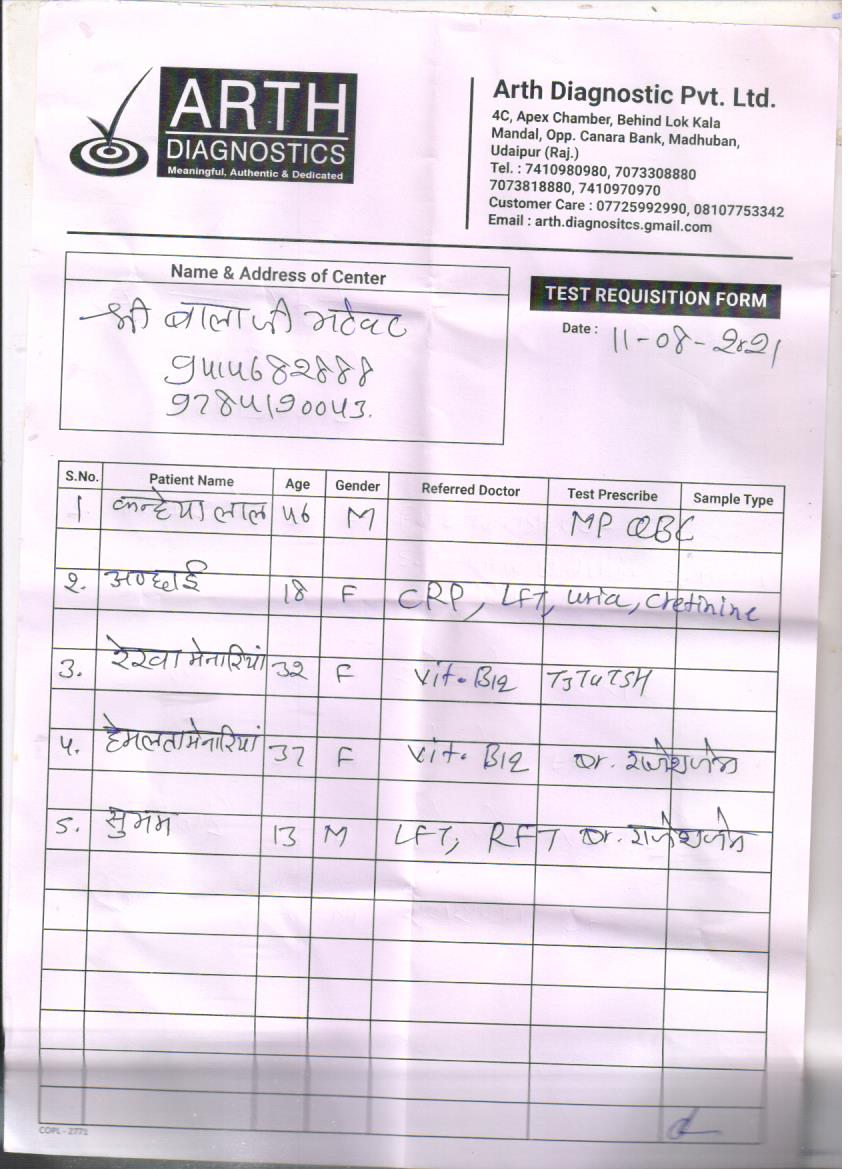 ARTH
DIAGNOSTICS
Meaningful, Authentic & Dedicated
Arth Diagnostic Pvt. Ltd.
4C, Apex Chamber, Behind Lok Kala
Mandal, Opp. Canara Bank, Madhuban,
Udaipur (Raj.)
Tel. : 7410980980, 7073308880
7073818880, 7410970970
Customer Care : 07725992990, 08107753342
Email : arth.diagnositcs.gmail.com
Name & Address of Center
श्री बालाजी भटेवर
9414682888
9784190043.
TEST REQUISITION FORM
Date : 11-08-2021
S.No. Patient Name Age Gender Referred Doctor Test Prescribe Sample Type
1 कन्हैया लाल 46 M MP QBC
2. 18 F CRP, LFT, uria, cretinine
3. रेखा मेनारियां 32 F Vit. B12 T3T4TSH
4. हेमलता मेनारियां 37 F Vit. B12 Dr. राजेश जैन
5. सुभम 13 M LFT, RFT Dr. राजेश जैन
COPL - 2771